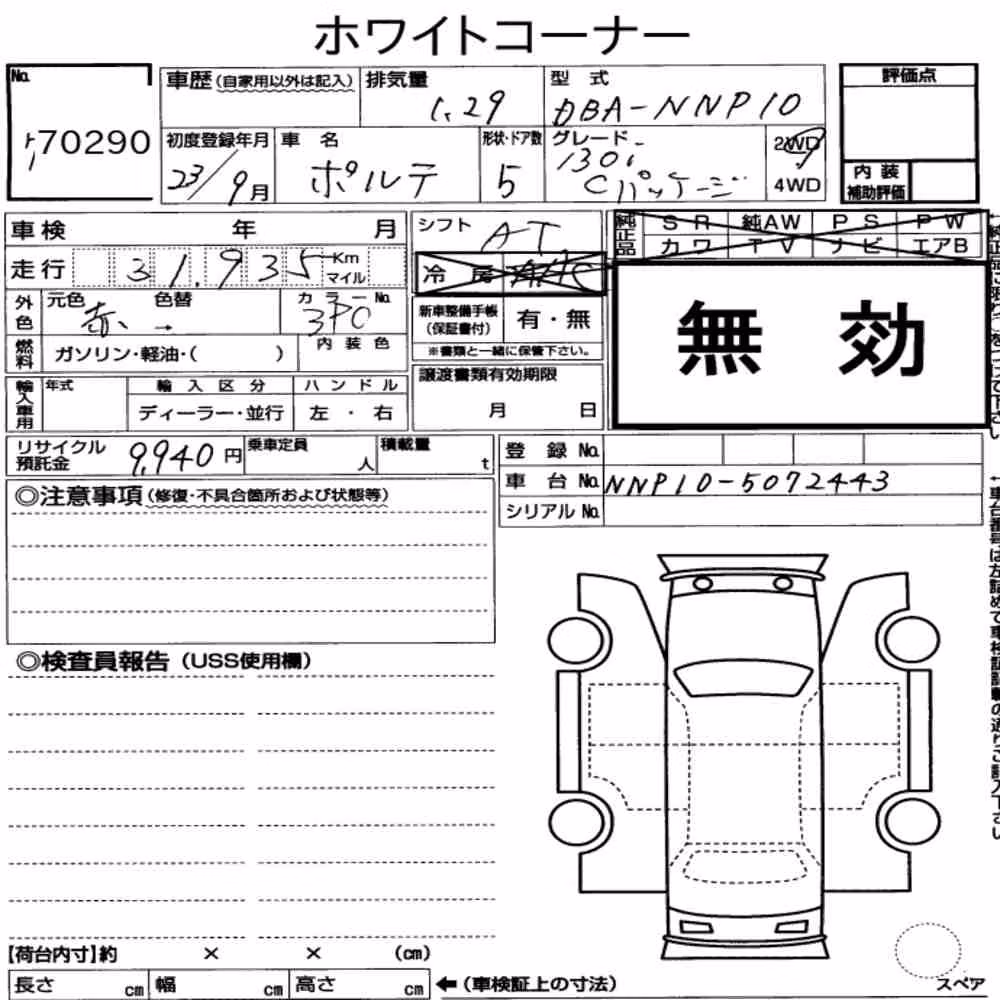 ホワイトコーナー
No.
70290
車歴(自家用以外は記入)
排気量
1.29
型 式
DBA-NNP10
評価点
初度登録年月
23/9月
車 名
ポルテ
形状・ドア数
5
グレード
130i
Cパッケージ
2WD
4WD
内 装
補助評価
車検 年 月
シフト
AT
純正品
SR 純AW PS PW
カワ TV ナビ エアB
走行 31,935 Km
マイル
冷 房
無 効
外色
元色 色替
赤 →
カラーNo.
3P0
新車整備手帳
(保証書付)
有・無
※書類と一緒に保管下さい。
燃料
ガソリン・軽油・( )
内装色
譲渡書類有効期限
月 日
輸入車用
年式
輸入区分
ディーラー・並行
ハンドル
左・右
リサイクル
預託金
9,940円
乗車定員
人
積載量
t
登 録 No.
車 台 No.
NNP10-5072443
シリアル No.
◎注意事項(修復・不具合箇所および状態等)
◎検査員報告(USS使用欄)
【荷台内寸】約 × × (cm)
長さ cm 幅 cm 高さ cm
←(車検証上の寸法)
スペア
←車台番号は左詰めで車検証記載の通りご記入下さい